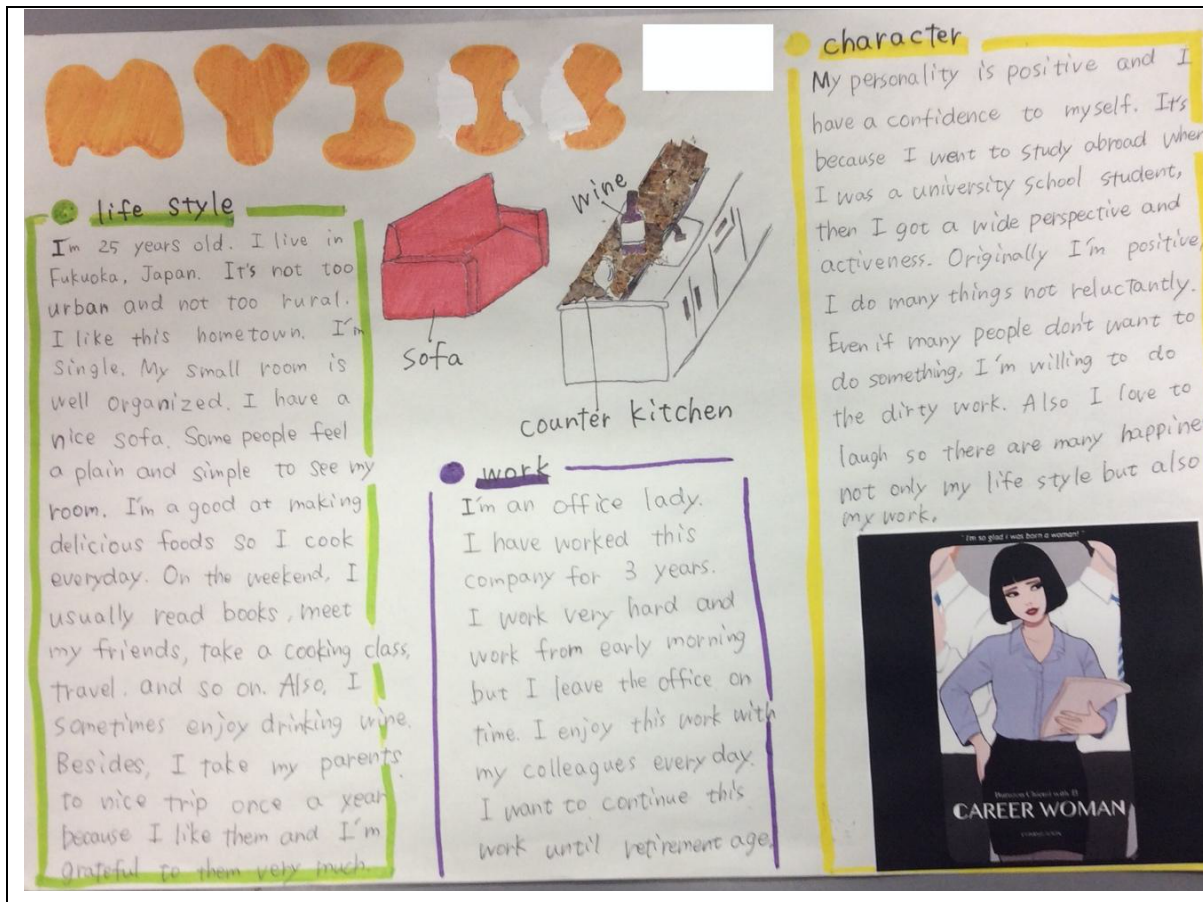 MY I IS
life style
I'm 25 years old. I live in
Fukuoka, Japan. It's not too
urban and not too rural.
I like this hometown. I'm
single. My small room is
well organized. I have a
nice sofa. Some people feel
a plain and simple to see my
room. I'm a good at making
delicious foods so I cook
everyday. On the weekend, I
usually read books, meet
my friends, take a cooking class,
travel. and so on. Also, I
sometimes enjoy drinking wine.
Besides, I take my parents
to nice trip once a year
because I like them and I'm
grateful to them very much.
sofa
wine
counter kitchen
work
I'm an office lady.
I have worked this
company for 3 years.
I work very hard and
work from early morning
but I leave the office on
time. I enjoy this work with
my colleagues every day.
I want to continue this
work until retirement age.
character
My personality is positive and I
have a confidence to myself. It's
because I went to study abroad when
I was a university school student,
then I got a wide perspective and
activeness. Originally I'm positive,
I do many things not reluctantly.
Even if many people don't want to
do something, I'm willing to do
the dirty work. Also I love to
laugh so there are many happine
not only my life style but also
my work.
"I'm so glad i was born a woman!"
CAREER WOMAN